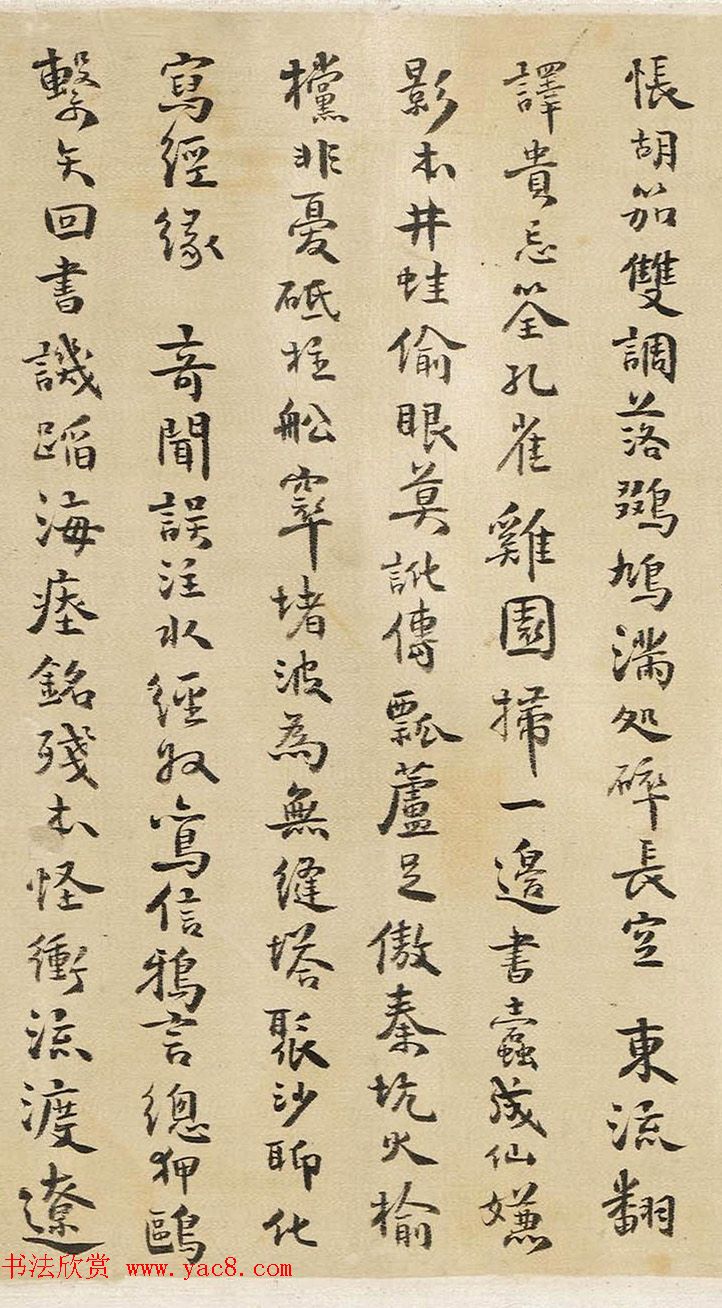 悵胡笳雙調落鵽鳩滿处碎長空 東流翻
譯貴忘筌孔雀雞園掃一邊書蠹成仙嫌
影本井蛙偷眼莫訛傳瓢蘆足傲秦坑火榆
欓非憂砥柱船窣堵波為無縫塔聚沙聊化
寫經緣 奇聞誤注水經收信鴉言總狎鷗
繫矢回書譏蹈海瘞銘殘本怪衝流渡遼
书法欣赏 www.yac8.com